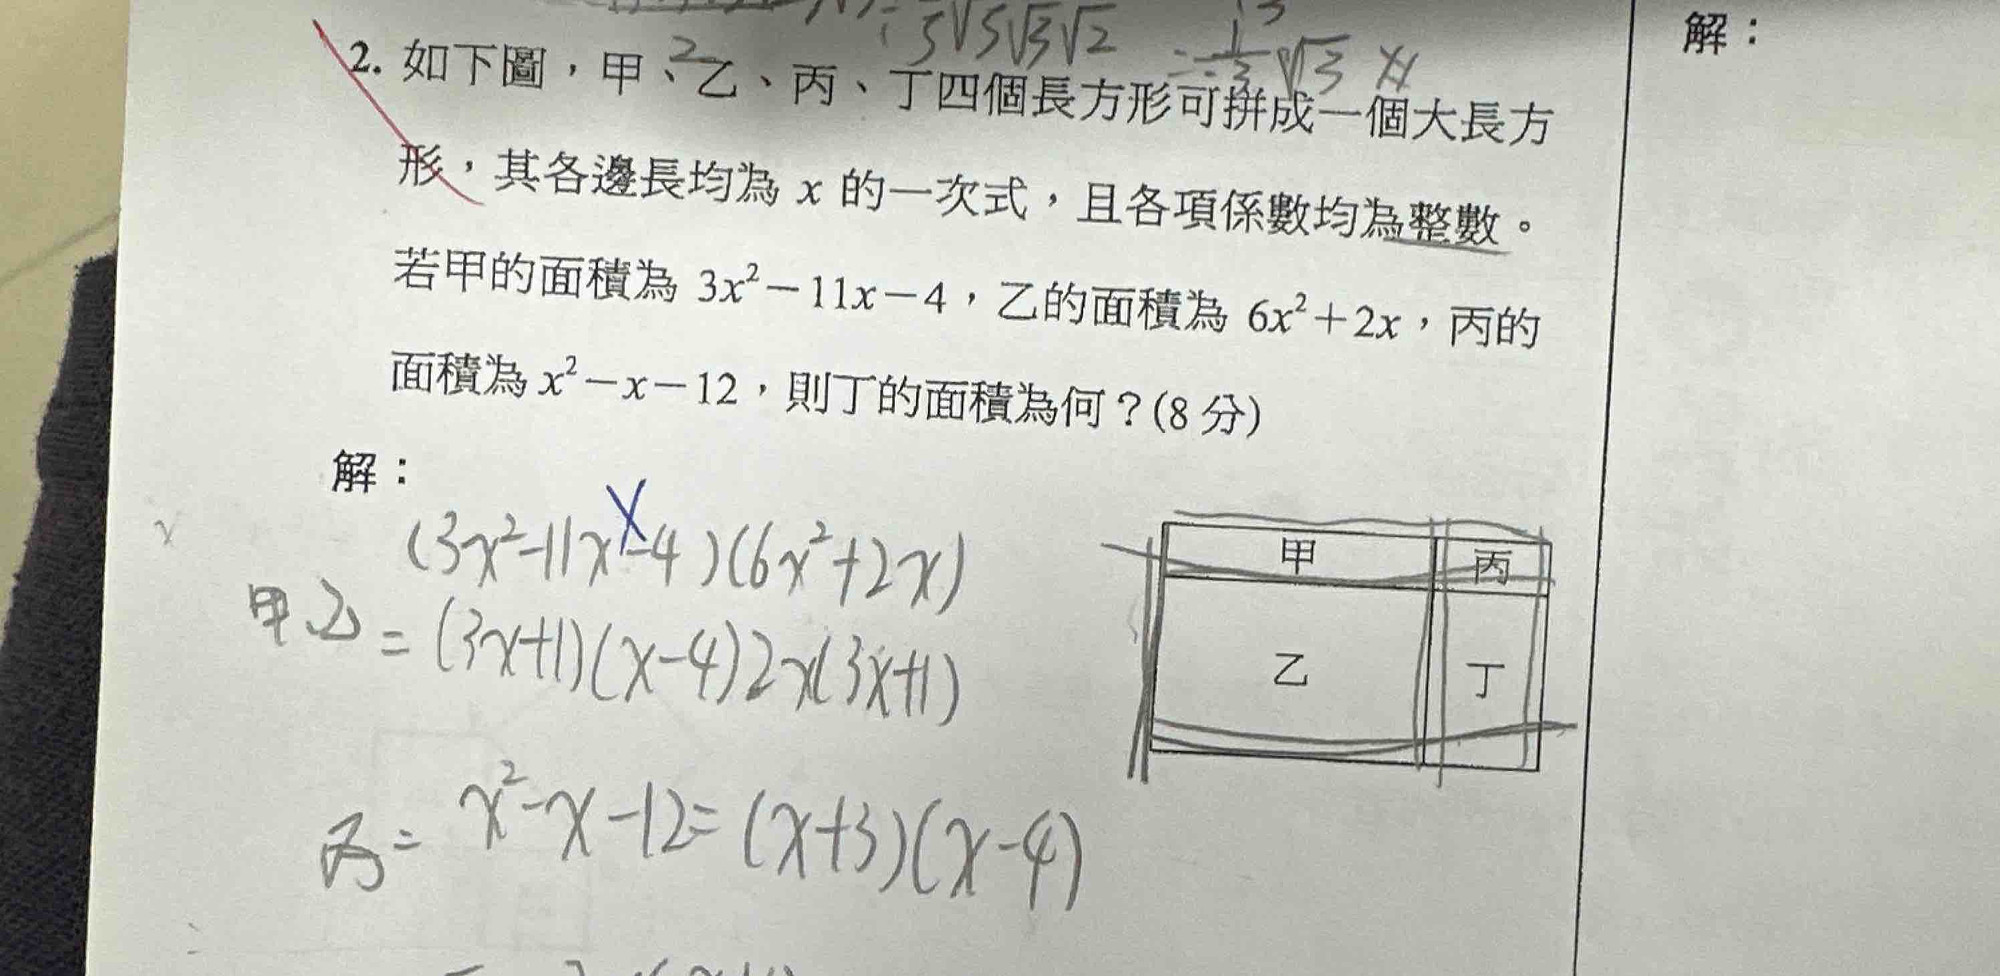 ÷5√5√3√2
2
= 1/3 √3
解：
2. 如下圖，甲、乙、丙、丁四個長方形可拼成一個大長方
形，其各邊長均為 x 的一次式，且各項係數均為整數。
若甲的面積為 3x²－11x－4，乙的面積為 6x²＋2x，丙的
面積為 x²－x－12，則丁的面積為何？(8 分)
解：
(3x²-11x-4)(6x²+2x)
甲乙 = (3x+1)(x-4)2x(3x+1)
丙= x²-x-12=(x+3)(x-4)
甲 丙
乙 丁